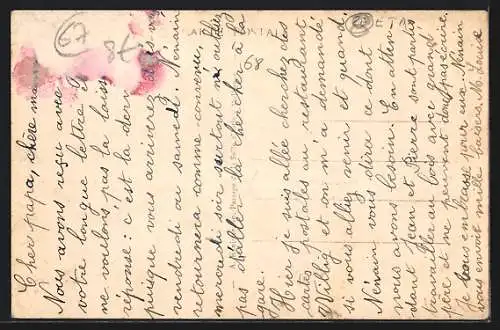 67
87
68
CARTE POSTALE
Cher papa, chère maman
Nous avons reçu avec
votre longue lettre
ne voulons pas la laisser
réponse : c'est la dern
puisque vous arriverez
vendredi ou samedi. Nénain
retournera comme convenu,
mercredi soir surtout n'oubliez
pas d'aller la chercher à la
gare.
Hier je suis allée chercher des
cartes postales au restaurant
Willig et on m'a demandé
si vous alliez venir et quand
Nénain vous dira ce dont
nous avons besoin. En atten-
dant Jean et Pierre sont partis
travailler au bois avec grand
père et ne peuvent donc pas écrire.
Je vous embrasse pour eux. Nénain
vous envoit mille baisers. M. Louise